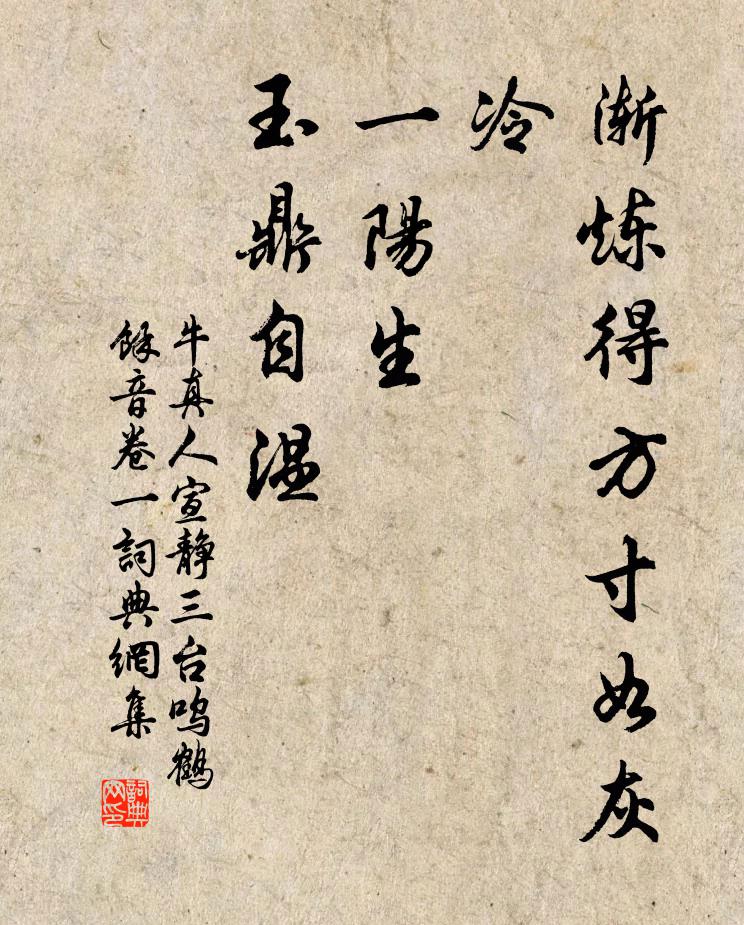 渐炼得方寸如灰
冷
一陽生
玉鼎自温
牛真人宣静三台鸣鶴
餘音卷一詞典網集
詞典
网印